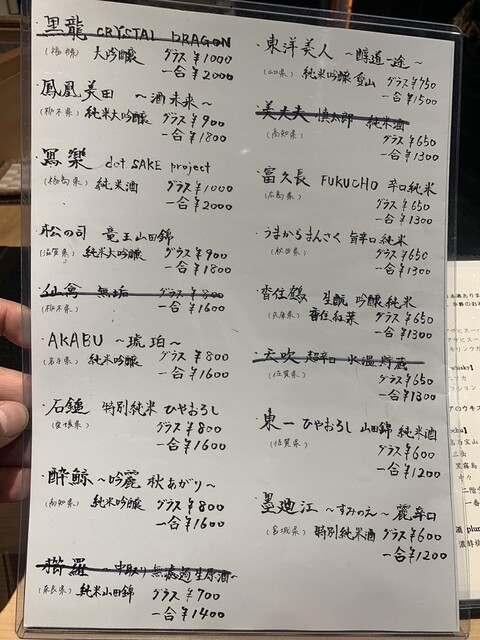 ・黒龍 CRYSTAL DRAGON
(福井県) 大吟醸 グラス ¥1000
一合 ¥2000
・鳳凰美田 〜酒未来〜
(栃木県) 純米大吟醸 グラス ¥900
一合 ¥1800
・寫樂 dot SAKE project
(福島県) 純米酒 グラス ¥1000
一合 ¥2000
・松の司 竜王山田錦
(滋賀県) 純米大吟醸 グラス ¥900
一合 ¥1800
・仙禽 無垢 グラス ¥800
(栃木県) 一合 ¥1600
・AKABU 〜琥珀〜
(岩手県) 純米吟醸 グラス ¥800
一合 ¥1600
・石鎚 特別純米 ひやおろし
(愛媛県) グラス ¥800
一合 ¥1600
・酔鯨 〜吟麗 秋あがり〜
(高知県) 純米吟醸 グラス ¥800
一合 ¥1600
・櫛羅 〜中取り無濾過生原酒〜
(奈良県) 純米山田錦 グラス ¥700
一合 ¥1400
・東洋美人 〜醇道一途〜
(山口県) 純米吟醸 愛山 グラス ¥750
一合 ¥1500
・美丈夫 慎太郎 純米酒
(高知県) グラス ¥650
一合 ¥1300
・富久長 FUKUCHO 辛口純米
(広島県) グラス ¥650
一合 ¥1300
・うまからまんさく 旨辛口純米
(秋田県) グラス ¥650
一合 ¥1300
・香住鶴 生酛 吟醸純米
(兵庫県) 香住紅葉 グラス ¥650
一合 ¥1300
・天吹 超辛口 氷温貯蔵
(佐賀県) グラス ¥650
一合 ¥1300
・東一 ひやおろし 山田錦 純米酒
(佐賀県) グラス ¥600
一合 ¥1200
・墨廼江 〜すみのえ〜 麗辛口
(宮城県) 特別純米酒 グラス ¥600
一合 ¥1200